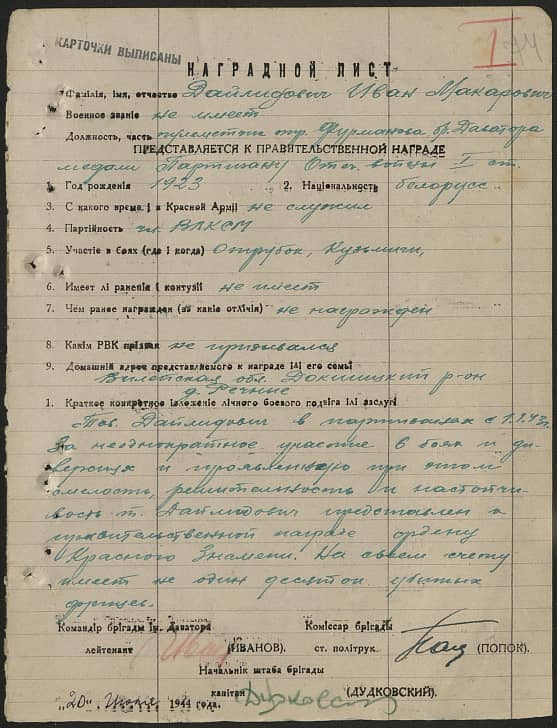 КАРТОЧКИ ВЫПИСАНЫ
I
НАГРАДНОЙ ЛИСТ
Фамілія, імя, отчество Дайлидович Иван Макарович
Военное званіе не имеет
Должность, часть пулеметчик отр. Фурманова бр. Даватора
ПРЕДСТАВЛЯЕТСЯ К ПРАВИТЕЛЬСТВЕННОЙ НАГРАДЕ
медали Партизану Отеч. войны I ст.
1. Год рожденія 1923 2. Національность белорусс
3. С какого времені в Красной Арміі не служил
4. Партійность чл. ВЛКСМ
5. Участіе в боях (где і когда) Отрубок, Кузьмичи,
6. Имеет лі раненія і контузіі не имеет
7. Чем ранее награжден (за какіе отлічія) не награжден
8. Какім РВК прізван не призывался
9. Домашній адрес представляемого к награде ілі его семьі
Вилейская обл. Докшицкий р-он
д. Речные
1. Краткое конкретное ізложеніе лічного боевого подвіга ілі заслугі
Тов. Дайлидович в партизанах с 1.1.43г.
За неоднократное участие в боях и ди-
версиях и проявленную при этом
смелость, решительность и настойчи-
вость т. Дайлидович представлен к
правительственной награде ордену
"Красного Знамени. На своем счету
имеет не один десяток убитых
фрицев.
Командір брігады ім. Даватора
Коміссар брігады
лейтенант (ІВАНОВ).
ст. політрук (ПОПОК).
Начальнік штаба брігады
капітан Дудковский (ДУДКОВСКИЙ).
„20" 1944 года.